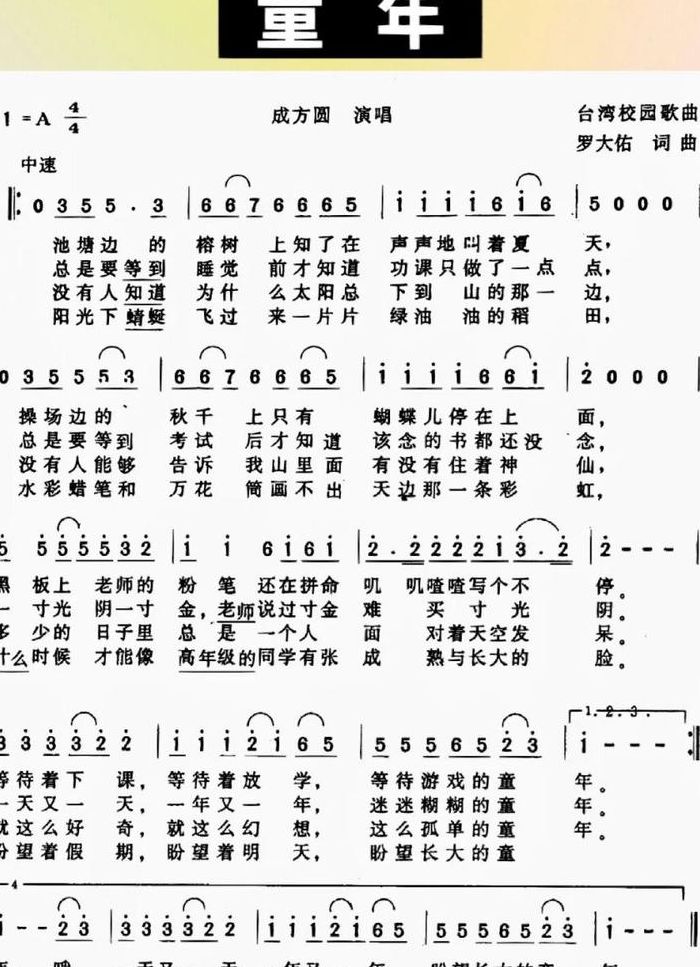 童年
1=A 4/4 成方圆 演唱 台湾校园歌曲
罗大佑 词 曲
中速
0 3 5 5 · 3 | 6 6 7 6 6 6 5 | i i i i 6 i 6 | 5 0 0 0 |
池塘边 的 榕树 上知了在 声声地叫着夏 天,
总是要等到 睡觉 前才知道 功课只做了一点 点,
没有人知道 为什 么太阳总 下到 山的那一 边,
阳光下蜻蜓 飞过 来一片片 绿油 油的稻 田,
0 3 5 5 5 5 3 | 6 6 7 6 6 6 5 | i i i i 6 6 i | 2 0 0 0 |
操场边的 秋千 上只有 蝴蝶儿停在上 面,
总是要等到 考试 后才知道 该念的书都还没 念,
没有人能够 告诉 我山里面 有没有住着神 仙,
水彩蜡笔和 万花 筒画不出 天边那一条彩 虹,
5 5 5 5 5 3 2 | i i 6 i 6 i | 2 · 2 2 2 2 i 3 · 2 | 2 - - - |
黑 板上 老师的 粉 笔 还在拼命 叽 叽喳喳写个不 停。
一 寸光 阴一寸 金,老师说过寸金 难 买 寸 光 阴。
多 少的 日子里 总 是 一个人 面 对着天空发 呆。
什么时候 才能像 高年级的同学有张 成 熟与长大的 脸。
3 3 3 3 2 2 | i i i 2 i 6 5 | 5 5 5 6 5 2 3 | 1.2.3. i - - - :|
等待着下 课, 等待着放 学, 等待游戏的童 年。
一天又一 天, 一年又一 年, 迷迷糊糊的童 年。
就这么好 奇, 就这么幻 想, 这么孤单的童 年。
盼望着假 期, 盼望着明 天, 盼望长大的童
4
i - - 2 3 | 3 3 3 3 2 2 | i i i 2 i 6 5 | 5 5 5 6 5 2 3 | i - - - |
哦 一天又一 天 一年又一 年 盼望长大的童 年